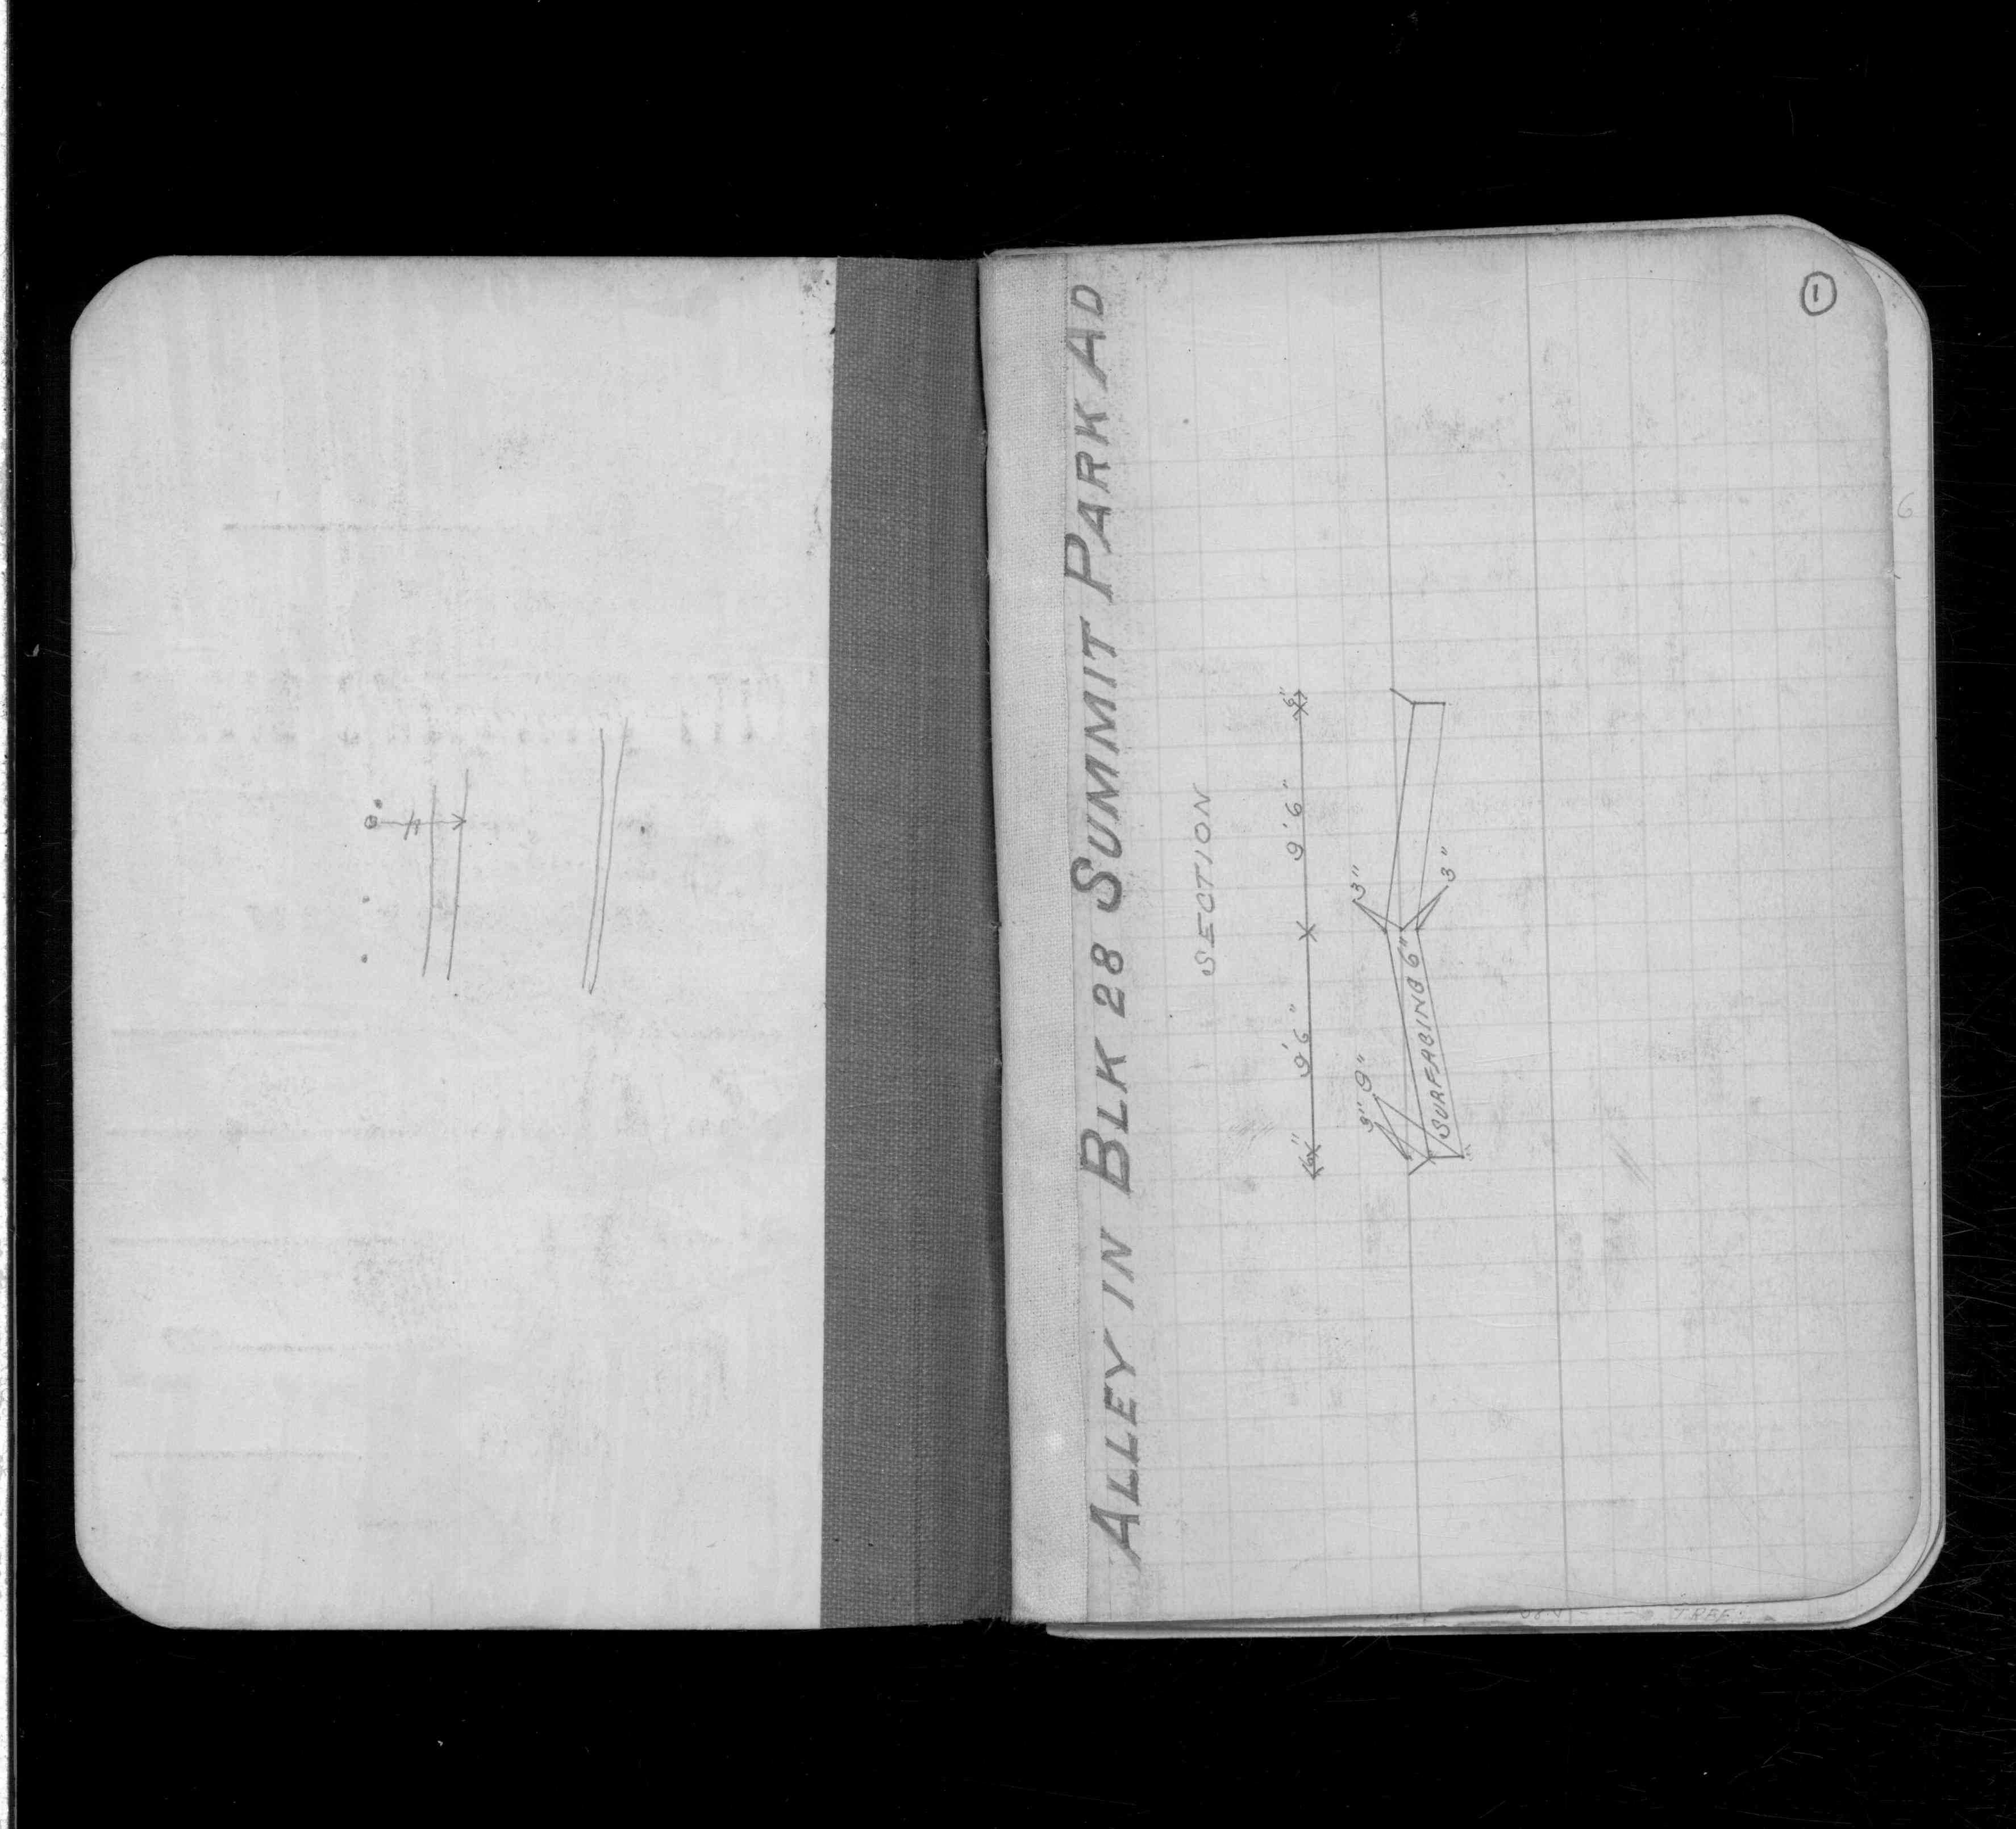 1
ALLEY IN BLK 28 SUMMIT PARK AD
SECTION
6" 9'6" 9'6" 6"
3" 9" 3"
SURFACING 6" 3"
6
TREE